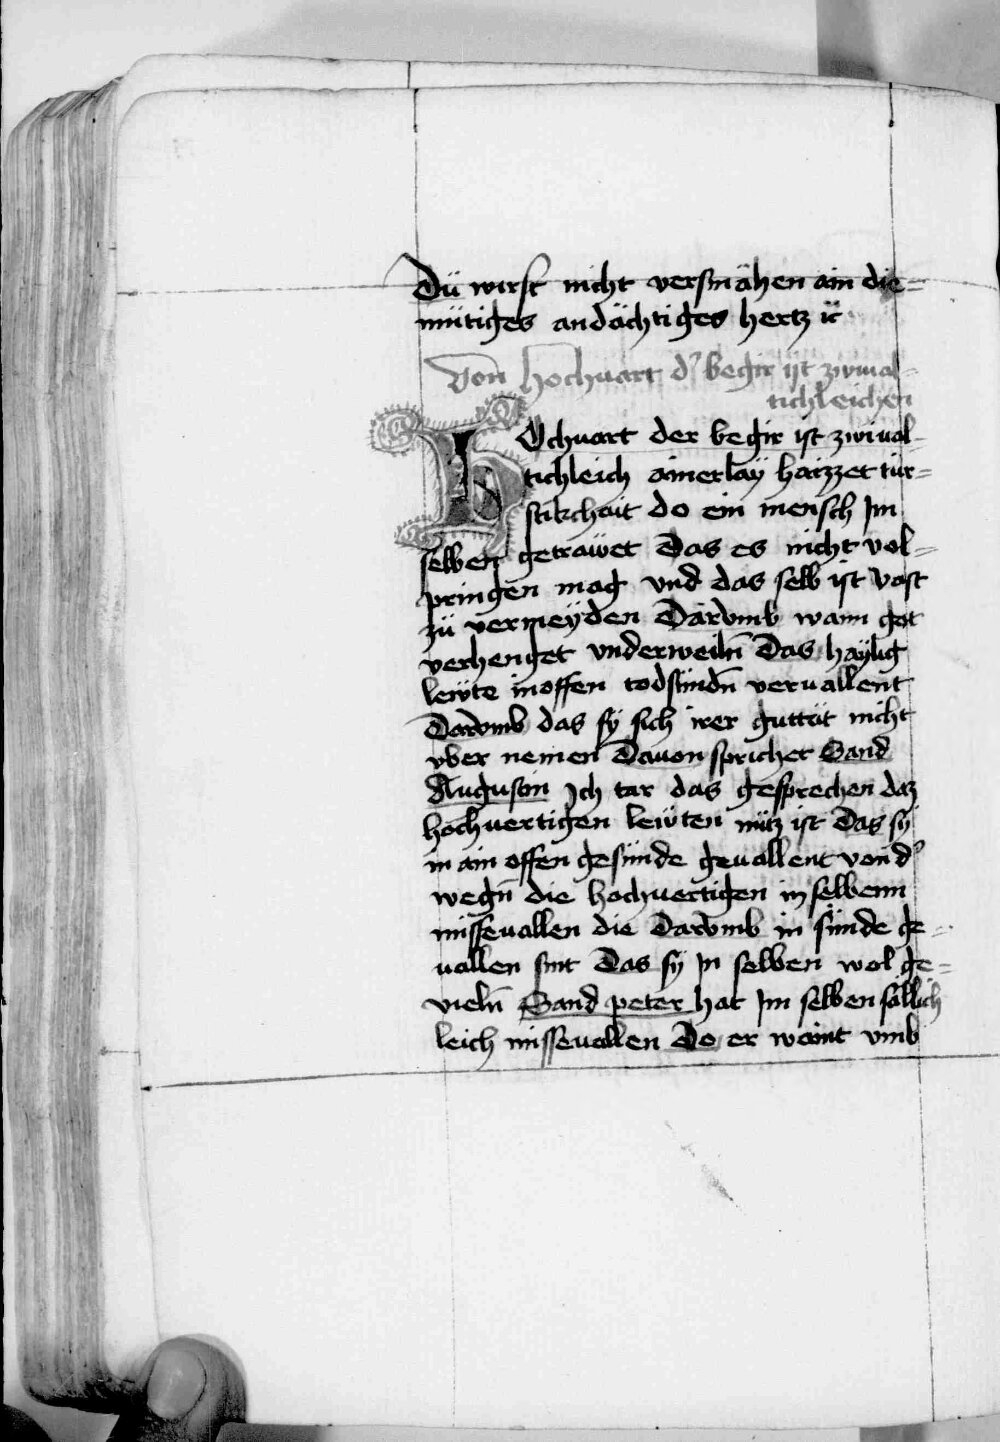 Dü wirst nicht versmähen ain die=
mütiges andächtiges hertz ꝛc
Von hochuart d᾽ begir ist zwiual=
tichleichen
HOchuart der begir ist zwiual=
tichleich ainerlaÿ haizzet tür=
stikchait do ein mensch Jm
selben getrawet Das es nicht vol=
pringen mag vnd das selb ist vast
zü vermeÿden Darvmb wann got
verhenget vnderweiln̄ Das haÿlig
lewte inoffen todsündn̄ veruallent
Darvmb das sÿ sich irer guttät nicht
vber nemen Dauon sprichet Sand
Augustin Jch tar das gesprechen daz
hochuertigen lewten nütz ist Das sÿ
in ain offen gesünde geuallent von d᾽
wegn̄ die hochuertigen in selbenn
misseuallen die Darvmb in sünde ge=
uallen sint Das sÿ Jn selben wol ge=
vieln̄ Sand peter hat Jm selben sällich
leich missevallen Do er waint vmb